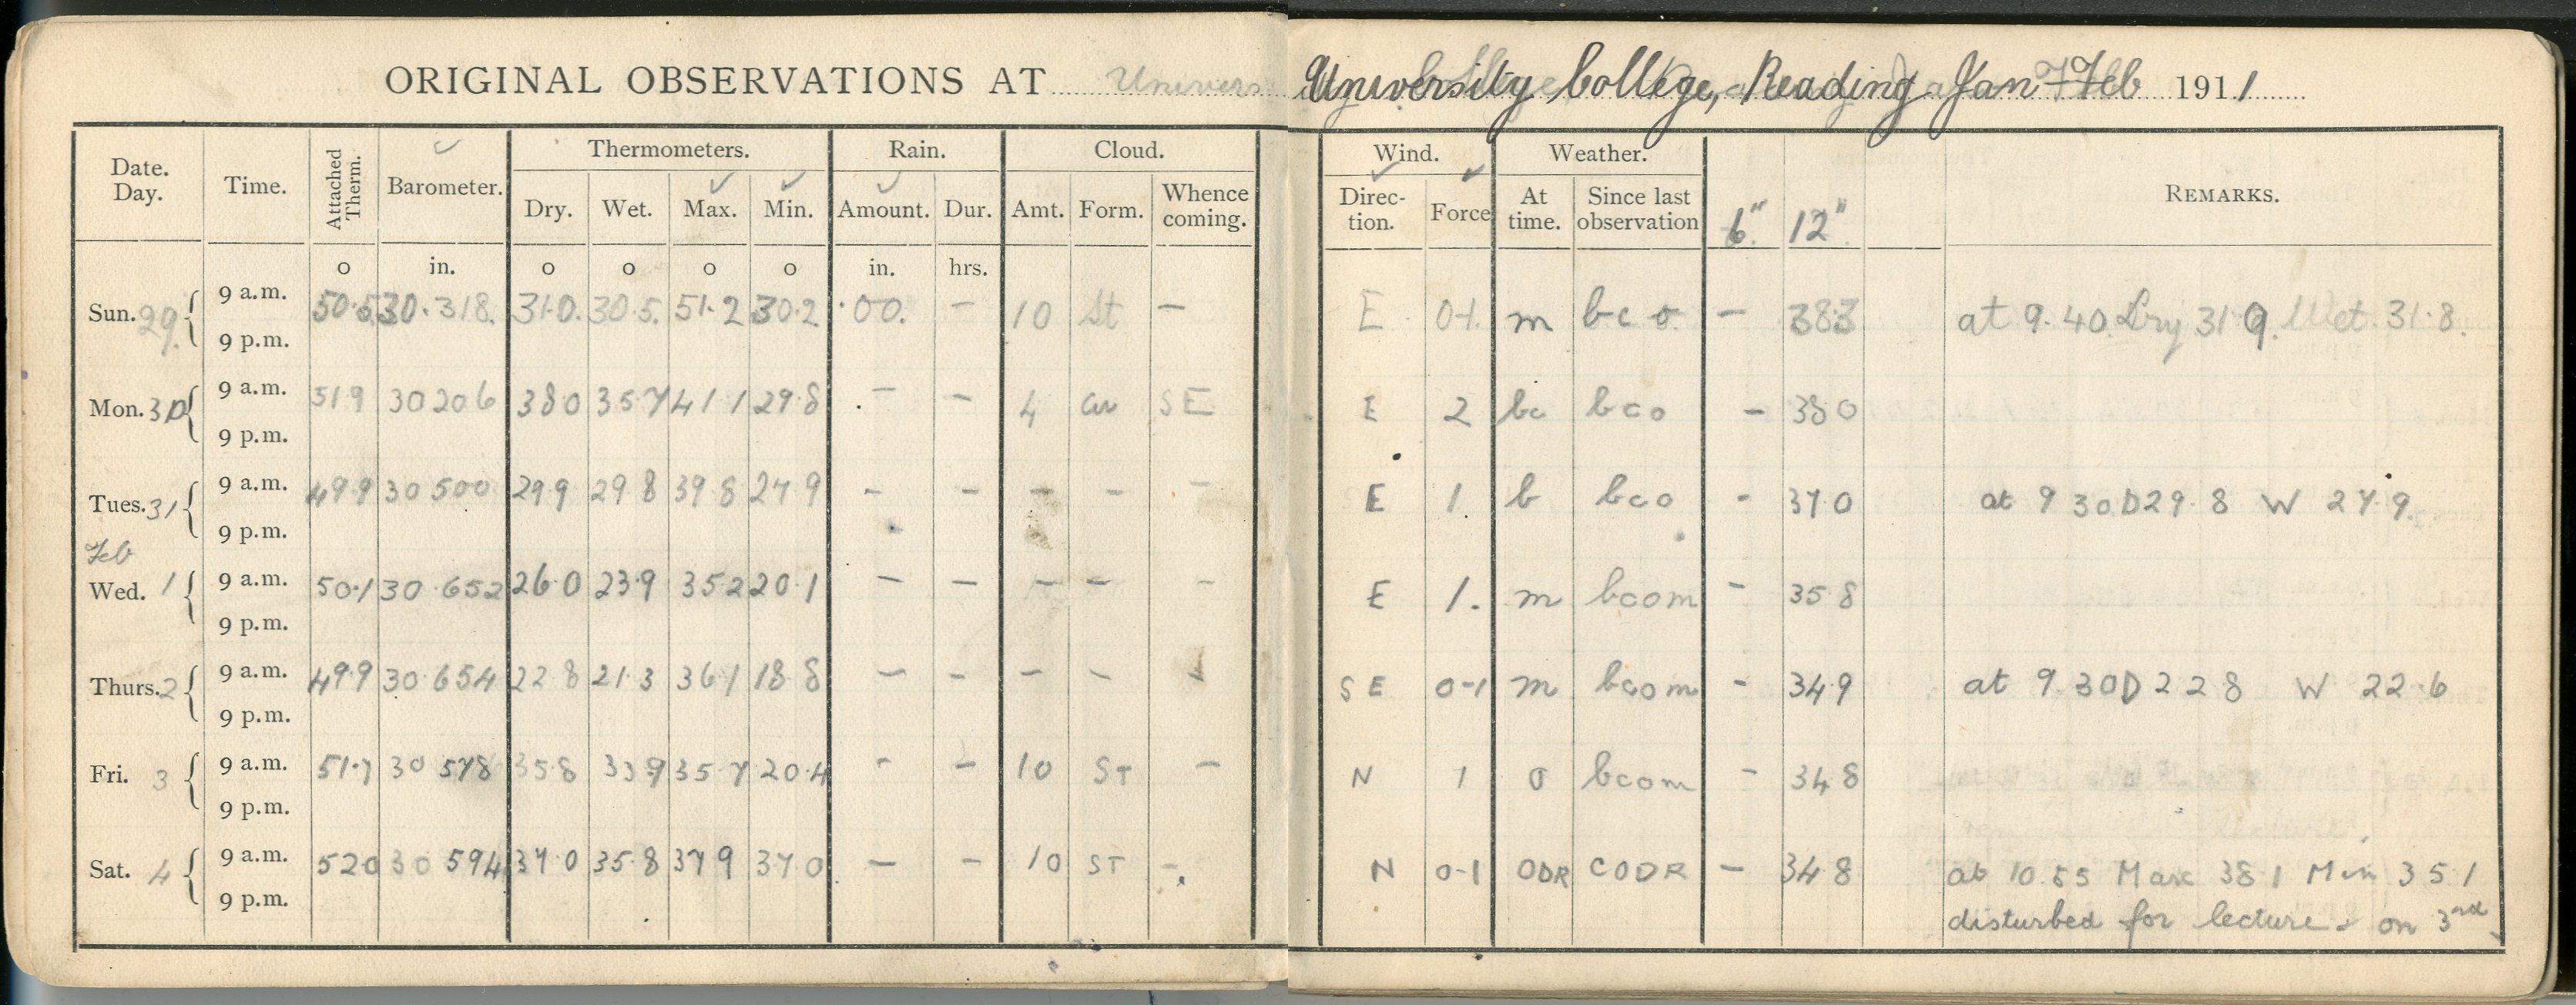 ORIGINAL OBSERVATIONS AT University College, Reading Jan + Feb 1911
Date. Day. Time. Attached Therm. Barometer. Thermometers. Rain. Cloud. Wind. Weather. 6" 12" REMARKS.
Dry. Wet. Max. Min. Amount. Dur. Amt. Form. Whence coming. Direction. Force At time. Since last observation
o in. o o o o in. hrs.
Sun. 29. 9 a.m. 50.5 30.318. 31.0. 30.5. 51.2 30.2 .00. - 10 St - E 0-1. m bco - 383 at 9.40. Dry 31 9. Wet. 31.8.
9 p.m.
Mon. 30 9 a.m. 51 9 30 206 38 0 35 7 41 1 29 8 - - 4 cu SE E 2 bc bco - 38 0
9 p.m.
Tues. 31 9 a.m. 49.9 30 500 29 9 29 8 39 8 27 9 - - - - - E 1. b bco - 37 0 at 9 30 D 29.8 W 27.9.
9 p.m.
Feb
Wed. 1 9 a.m. 50.1 30.652 26 0 23.9 35 2 20.1 - - - - - E 1. m bcom - 35 8
9 p.m.
Thurs. 2 9 a.m. 49.9 30.654 22 8 21.3 36 1 18 8 - - - - - SE 0-1 m bcom - 34.9 at 9.30 D 22 8 W 22.6
9 p.m.
Fri. 3 9 a.m. 51.7 30 578 35.8 33 9 35.7 20.4 - - 10 ST - N 1 o bcom - 34 8
9 p.m.
Sat. 4 9 a.m. 52 0 30 594 37.0 35.8 37 9 37 0 - - 10 ST - N 0-1 ODR CODR - 34 8 at 10.55 Max 38 1 Min 35 1
9 p.m. disturbed for lecture - on 3rd